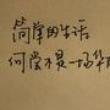 简单的生活
何尝不是一场华